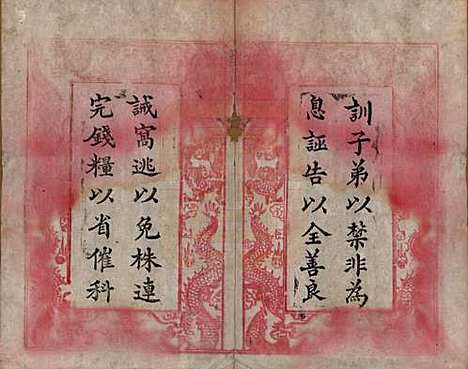 訓子弟以禁非為
息誣告以全善良
誡窩逃以免株連
完錢糧以省催科